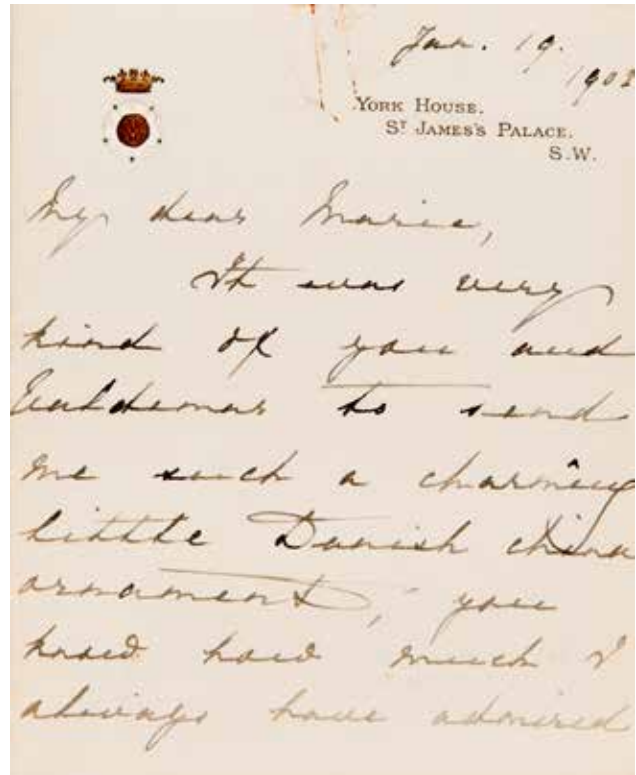 Jan. 19.
1903
YORK HOUSE.
ST JAMES'S PALACE.
S.W.
My dear Marie,
It was very
kind of you and
Valdemar to send
me such a charming
little Danish china
ornament, you
know how much I
always have admired